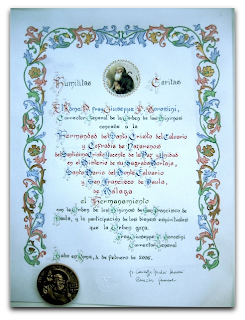 Humilitas Caritas
El Rvmo. P. fray Giuseppe F. Morosini,
Corrector General de la Orden de los Mínimos
concede a la
Hermandad del Santo Cristo del Calvario
y Cofradía de Nazarenos
del Santísimo Cristo Yacente de la Paz y Unidad
en el Misterio de su Sagrada Mortaja,
Santa María del Santo Calvario
y San Francisco de Paula,
de Málaga
el Hermanamiento
con la Orden de los Mínimos de San Francisco de
Paula, y la participación de los bienes espirituales
que la Orden goza.
Fray Giuseppe F. Morosini
Corrector General
Dado en Roma, a de febrero de 2006.